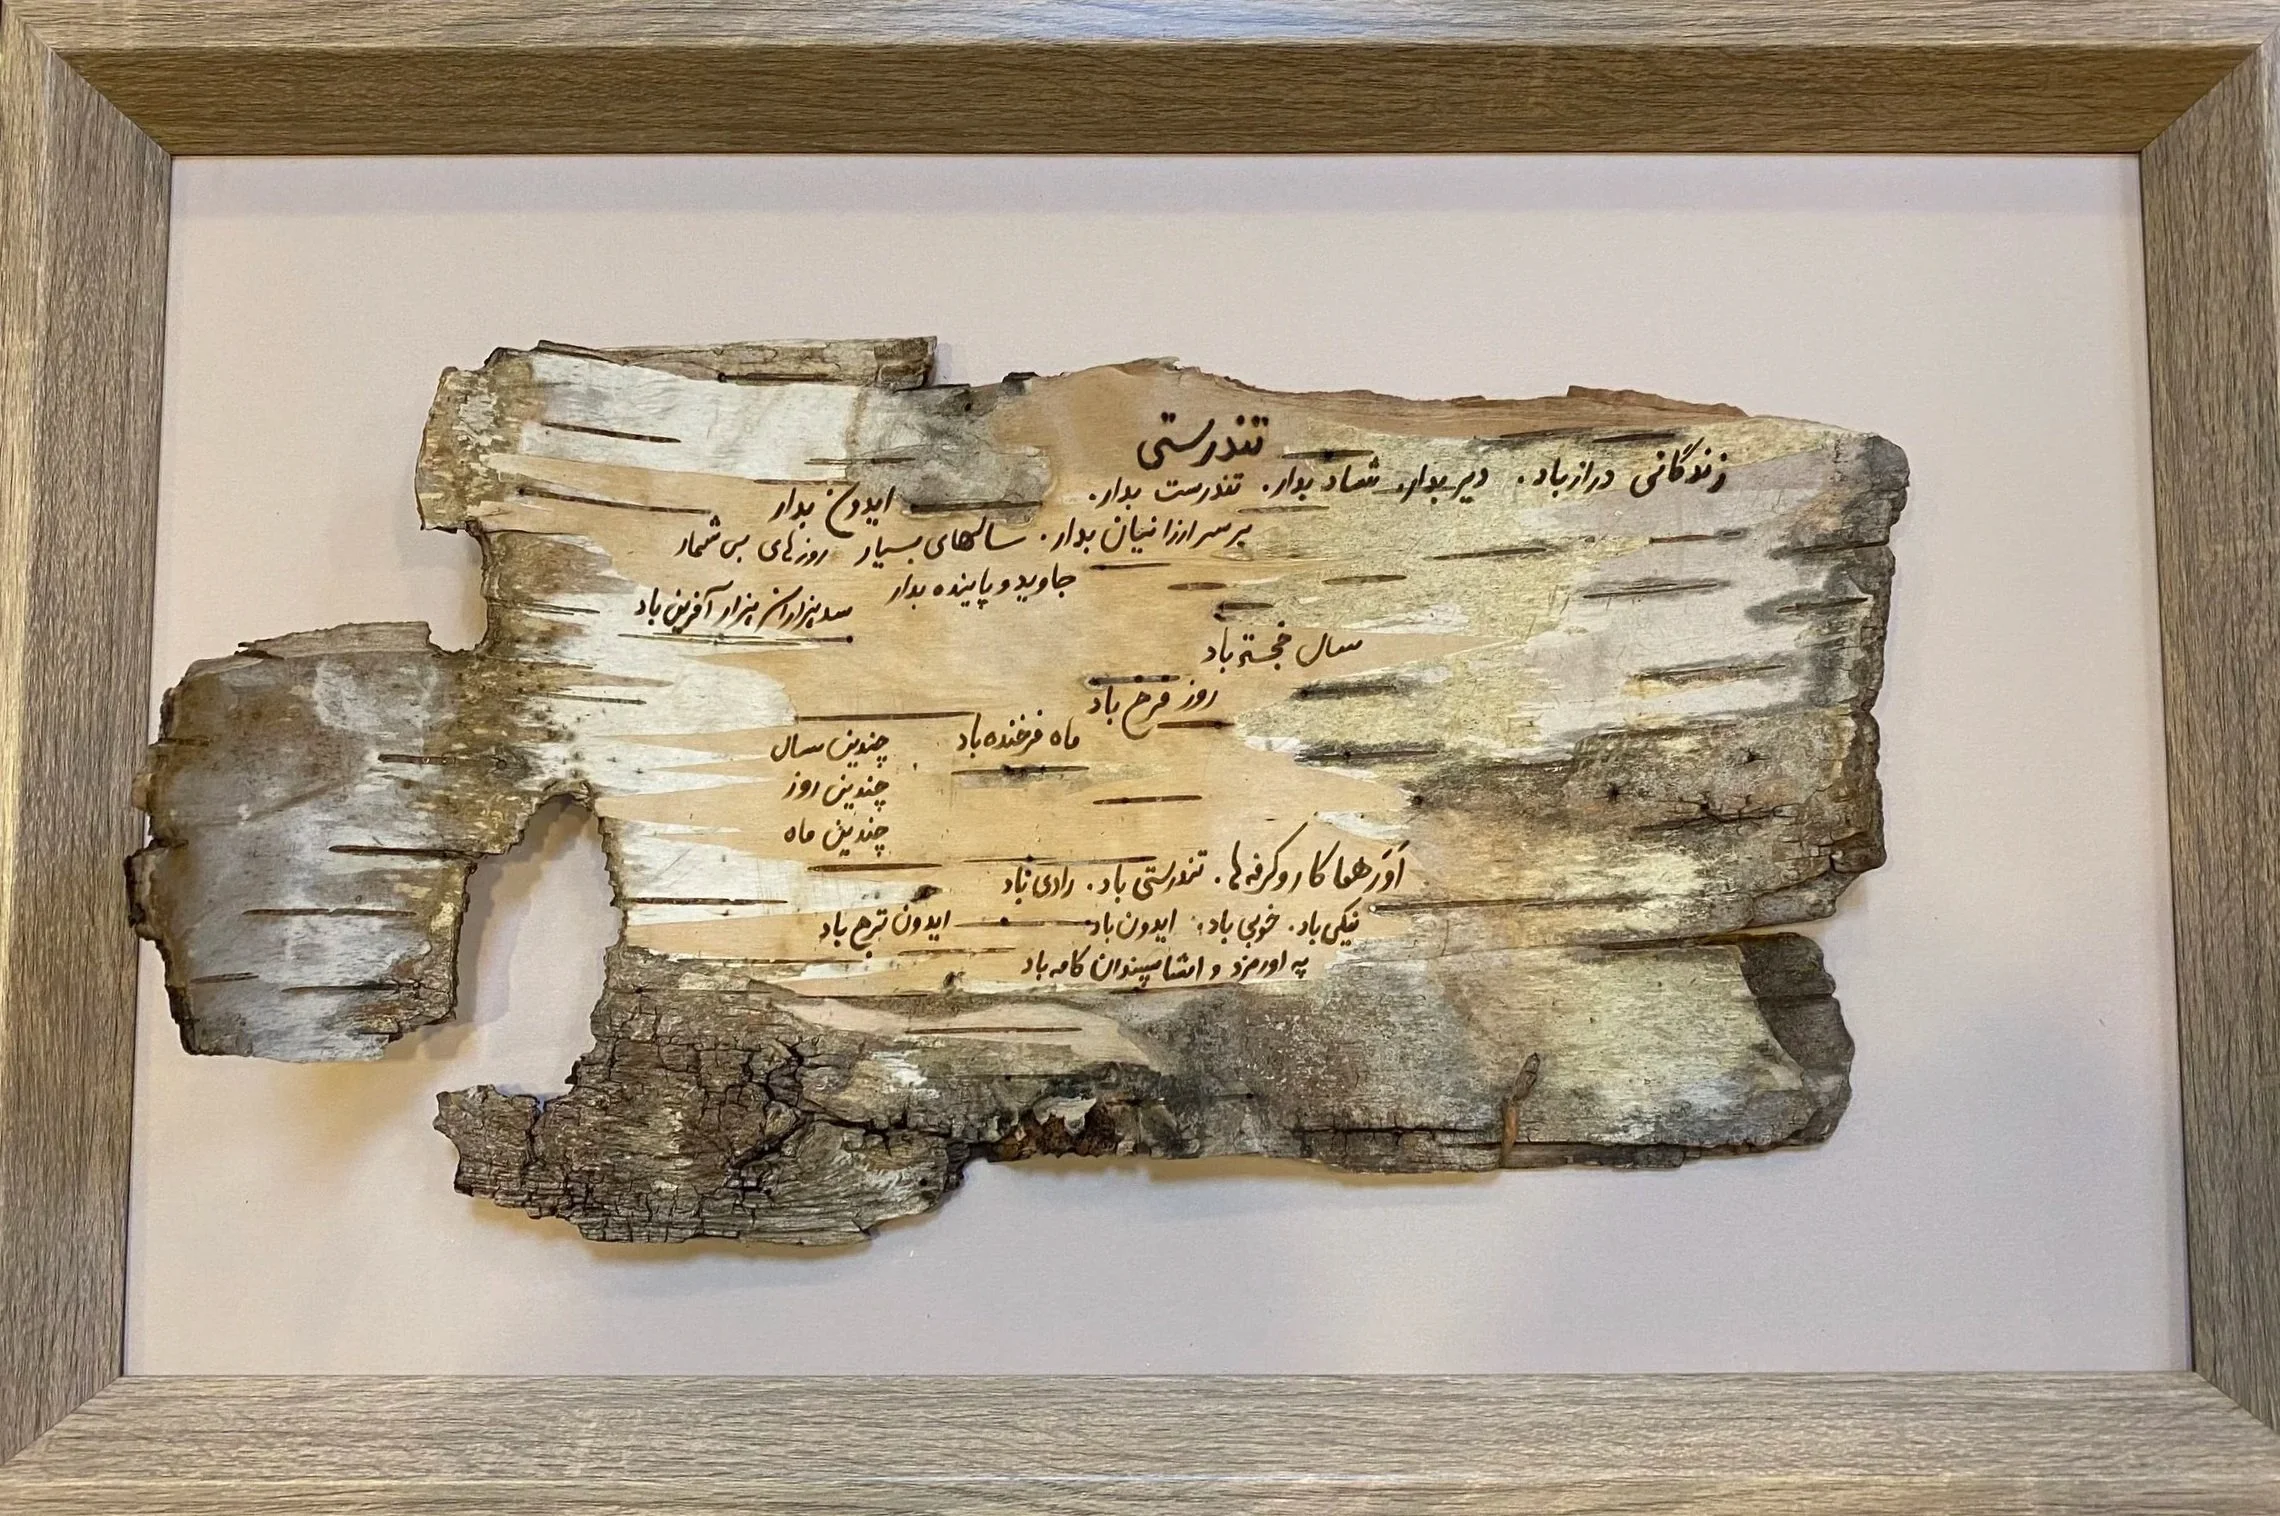 تندرستی
زندگانی دراز باد. دیر بدار. شاد بدار. تندرست بدار. ایدون بدار
بر سر ارزانیان بدار. سالهای بسیار روزهای بی شمار
جاوید و پاینده بدار
سد هزاران هزار آفرین باد
سال خجسته باد
روز فرخ باد
ماه فرخنده باد
چندین سال
چندین روز
چندین ماه
اَوَرهما کار و کرفه ها. تندرستی باد. رادی باد
نیکی باد. خوبی باد. ایدون باد ایدون ترج باد
په اورمزد و امشاسپندان کامه باد